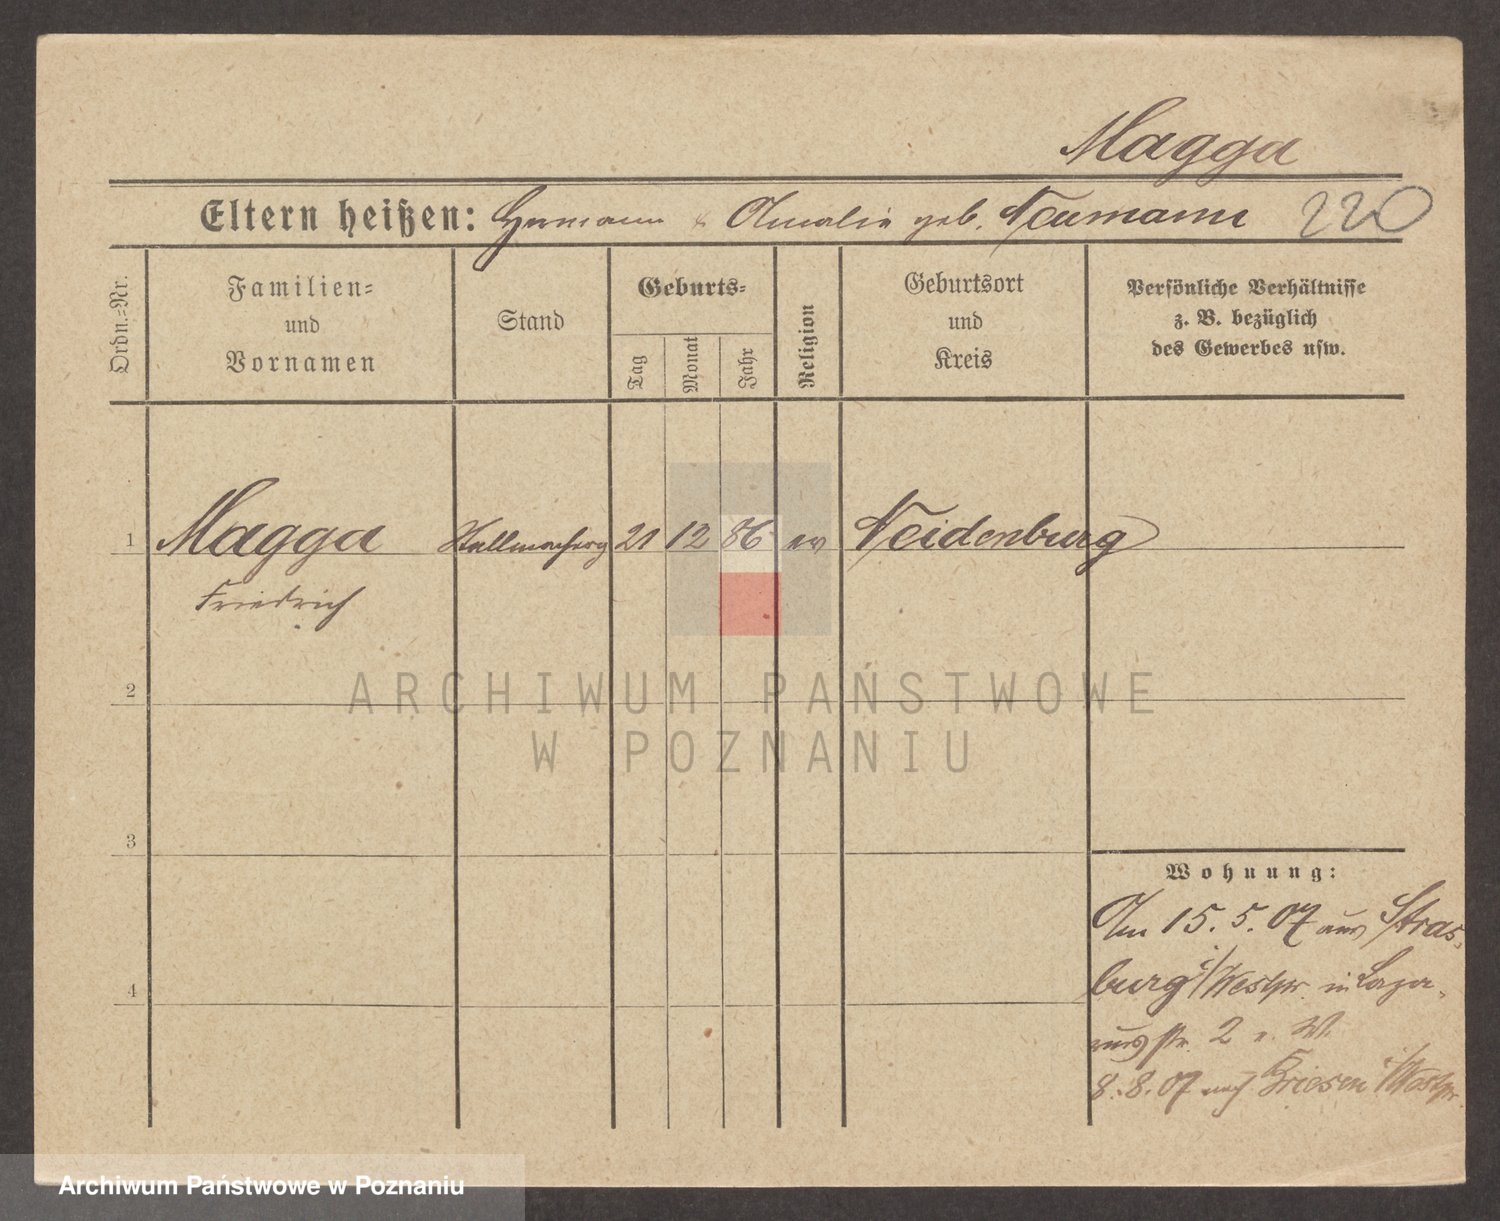 Magga
Eltern heißen: Hermann & Amalie geb. Neumann 220
Ordn.-Nr.
Familien-
und
Vornamen
Stand
Geburts-
Tag
Monat
Jahr
Religion
Geburtsort
und
Kreis
Persönliche Verhältnisse
z. B. bezüglich
des Gewerbes usw.
1 Magga 21 12 86 ev Neidenburg
Friedrich
2
ARCHIWUM PAŃSTWOWE
W POZNANIU
3
Wohnung:
Am 15. 5. 07 aus Stras-
burg i/Westpr. in Laza-
4
russtr. 2 b. W.
8. 8. 07 nach Briesen i/Westpr.
Archiwum Państwowe w Poznaniu